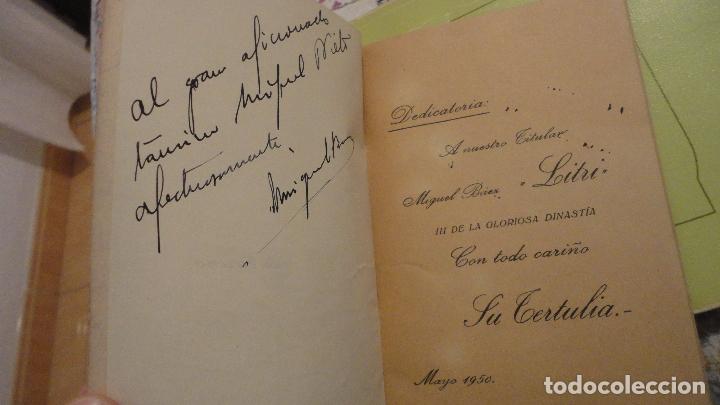 al gran aficionado
taurino Miguel Nieto
afectuosamente
Miguel Báez
Dedicatoria:
A nuestro Titular
Miguel Báez "Litri"
III DE LA GLORIOSA DINASTÍA
Con todo cariño
Su Tertulia.-
Mayo 1950.
todocoleccion
todocoleccion.net